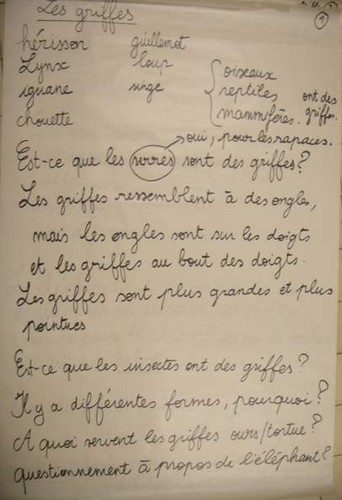 Les griffes
1
hérisson guillemot
Lynx loup
iguane singe
chouette
oiseaux
reptiles
mammifères.
ont des
griffes.
oui, pour les rapaces.
Est-ce que les serres sont des griffes?
Les griffes ressemblent à des ongles,
mais les ongles sont sur les doigts
et les griffes au bout des doigts.
Les griffes sont plus grandes et plus
pointues
Est-ce que les insectes ont des griffes?
Il y a différentes formes, pourquoi?
A quoi servent les griffes ours/tortue?
questionnement à propos de l'éléphant?